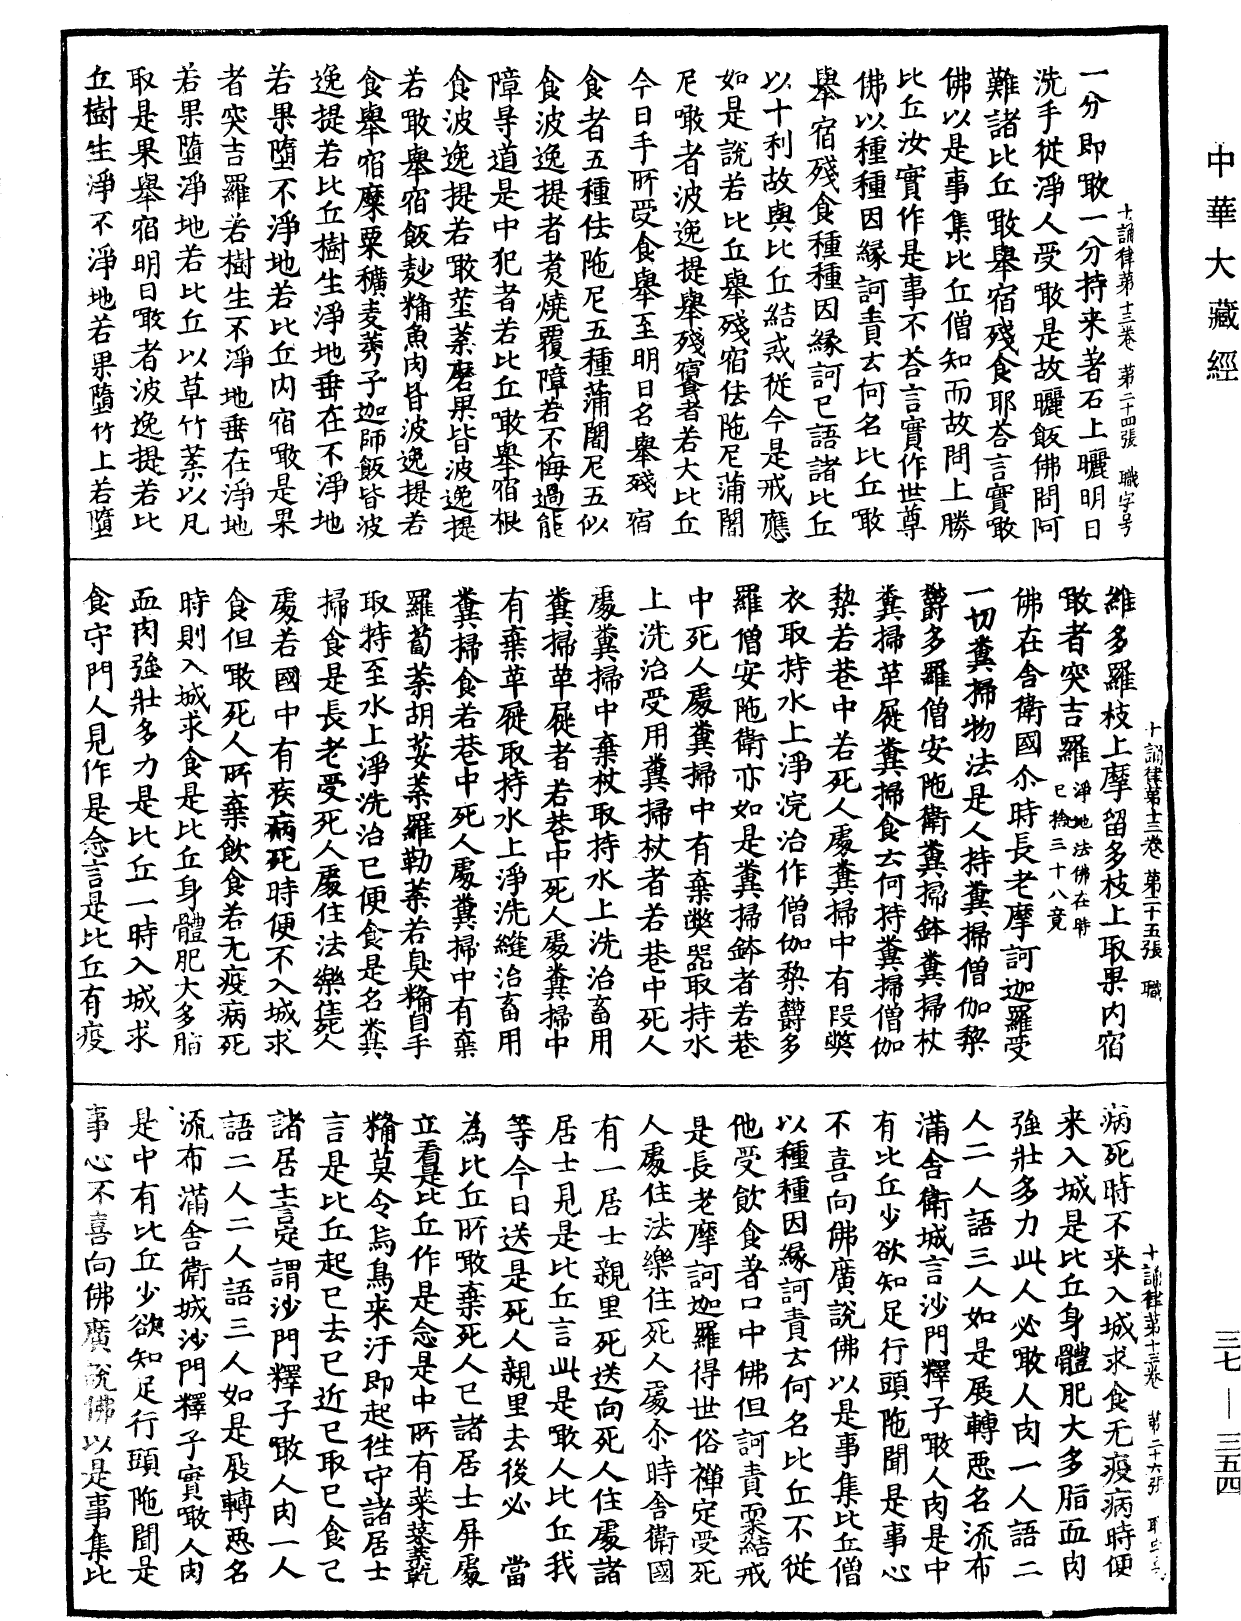 中華大藏經
一分即噉一分持来著石上曬明日
十誦律第十三卷 第二十四張 職字号
洗手從淨人受噉是故曬飯佛問阿
難諸比丘噉舉宿殘食耶荅言實噉
佛以是事集比丘僧知而故問上勝
比丘汝實作是事不荅言實作世尊
佛以種種因緣訶責云何名比丘噉
舉宿殘食種種因緣訶已語諸比丘
以十利故與比丘結戒從今是戒應
如是說若比丘舉殘宿佉陁尼蒲闍
尼噉者波逸提舉殘宿食者若大比丘
今日手所受食舉至明日名舉殘宿
食者五種佉陁尼五種蒲闍尼五似
食波逸提者煑燒覆障若不悔過能
障㝵道是中犯者若比丘噉舉宿根
食波逸提若噉莖葉磨果皆波逸提
若噉舉宿飯麨糒魚肉皆波逸提若
食舉宿糜粟穬麦莠子迦師飯皆波
逸提若比丘樹生淨地垂在不淨地
若果墮不淨地若比丘内宿噉是果
者突吉羅若樹生不淨地垂在淨地
若果墮淨地若比丘以草竹葉以凡
取是果舉宿明日噉者波逸提若比
丘樹生淨不淨地若果墮竹上若墮
維多羅枝上摩留多枝上取果内宿
十誦律第十三卷 第二十五張 職
噉者突吉羅淨地法佛在時已捨三十八竟
佛在舎衛國尒時長老摩訶迦羅受
一切糞掃物法是人持糞掃僧伽黎
欝多羅僧安陁衛糞掃鉢糞掃杖
糞掃革屣糞掃食云何持糞掃僧伽
黎若巷中若死人處糞掃中有段弊
衣取持水上淨浣治作僧伽黎欝多
羅僧安陁衛亦如是糞掃鉢者若巷
中死人處糞掃中有棄弊器取持水
上洗治受用糞掃杖者若巷中死人
處糞掃中棄杖取持水上洗治畜用
糞掃革屣者若巷中死人處糞掃中
有棄革屣取持水上淨洗縫治畜用
糞掃食若巷中死人處糞掃中有棄
羅蔔葉胡荽葉羅勒葉若臭糒自手
取持至水上淨洗治已便食是名糞
掃食是長老受死人處住法樂住死人
處若國中有疾病死時便不入城求
食但噉死人所棄飲食若无疫病死
時則入城求食是比丘身體肥大多脂
血肉強壯多力是比丘一時入城求
食守門人見作是念言是比丘有疫
病死時不来入城求食无疫病時便
十誦律第十三卷 第二十六張
来入城是比丘身體肥大多脂血肉
強壯多力此人必噉人肉一人語二
人二人語三人如是展轉惡名流布
滿舎衛城言沙門釋子噉人肉是中
有比丘少欲知足行頭陁聞是事心
不喜向佛廣說佛以是事集比丘僧
以種種因緣訶責云何名比丘不從
他受飲食著口中佛但訶責而未結戒
是長老摩訶迦羅得世俗禪定受死
人處住法樂住死人處尒時舎衛國
有一居士親里死送向死人住處諸
居士見是比丘言此是噉人比丘我
等今日送是死人親里去後必當
為比丘所噉棄死人已諸居士屏處
立看是比丘作是念是中所有菜葉羹乾
糒莫令烏鳥来汙即起徃守諸居士
言是比丘起已去已近已取已食已
諸居士言定謂沙門釋子噉人肉一人
語二人二人語三人如是展轉惡名
流布滿舎衛城沙門釋子實噉人肉
是中有比丘少欲知足行頭陁聞是
事心不喜向佛廣說佛以是事集比
三七—三五四